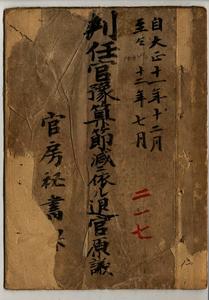 自大正十一年十二月
至〃十二年七月
判任官豫算節減ニ依ル退官原議
官房秘書課
二一七